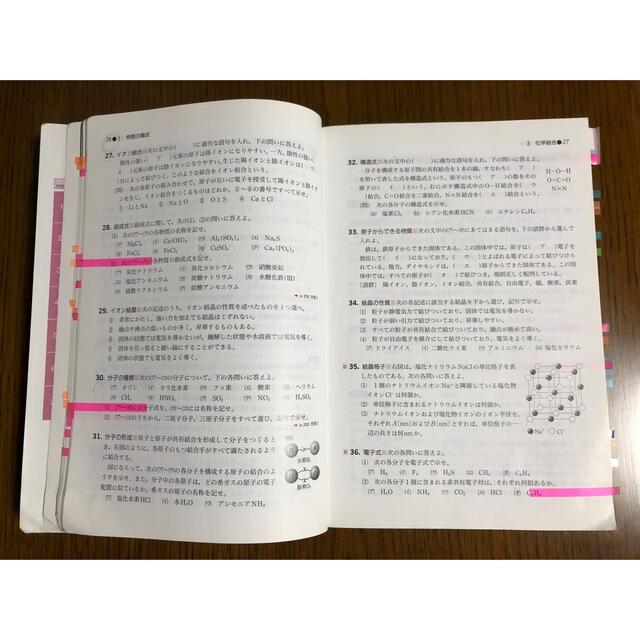 26● 1 物質の構成
27. イオン結合 次の文中の( )に適当な語句を入れ，下の問いに答えよ。
陰性の強い( ア )元素の原子は陽イオンになりやすい。一方，陰性の強い
( イ )元素の原子は陰イオンになりやすい。生じた陽イオンと陰イオンは( ウ )
力によって結びつく。このような結合をイオン結合という。
(問) 次の各原子の組み合わせで，原子が互いに電子を授受して陽イオンと陰イオン
を生じ，イオン結合をつくるものはどれか。①～④の番号ですべて示せ。
① LiとNa ② NaとO ③ OとS ④ CaとCl
28. 組成式 組成式に関して，次の(1)，(2)の問いに答えよ。
(1) 次の(ア)～(ク)の各物質の名称を記せ。
(ア) MgCl₂ (イ) Ca(OH)₂ (ウ) Al₂(SO₄)₃ (エ) Na₂S
(オ) FeCl₂ (カ) FeCl₃ (キ) CuSO₄ (ク) Ca₃(PO₄)₂
各物質の組成式を記せ。
(ア) 臭化ナトリウム (イ) 臭化カルシウム (ウ) 硝酸亜鉛
(エ) 塩化アンモニウム (オ) 炭酸ナトリウム (カ) 水酸化鉄(Ⅲ)
(キ) 硫酸マグネシウム (ク) 硫酸アンモニウム
29. イオン結晶 次の記述のうち，イオン結晶の性質を述べたものを1つ選べ。
① 非常にかたく，強い力を加えても結晶はくずれない。
② 融点や沸点の低いものが多く，昇華するものもある。
③ 固体の状態では電気を導かないが，融解した状態や水溶液では電気を導く。
④ 固体を引っ張ると細い線にすることができる。
⑤ 固体の状態でも電気をよく導く。
30. 分子の種類 次の(ア)～(コ)の分子について，下の各問いに答えよ。
(ア) オゾン (イ) ヨウ化水素 (ウ) フッ素 (エ) 酸素 (オ) ヘリウム
(カ) CH₄ (キ) HNO₃ (ク) CO₂ (ケ) NH₃ (コ) H₂SO₄
(1) (ア)～(オ)には分子式を，(カ)～(コ)には名称を記せ。
(2) (ア)～(コ)のうちから，二原子分子，三原子分子をすべて選び，記号で示せ。
31. 分子の形成 原子と原子が共有結合を形成して分子をつくると
き，右図のように，各原子のもつ結合手がすべて満たされるよう
に結合する。
図にならって，次の(ア)～(ウ)の各分子を構成する原子の結合のよ
うすを示せ。また，分子中の各原子は，どの希ガスの原子の電子
配置に似ているか。希ガスの原子の名称を記せ。
(ア) 塩化水素HCl (イ) 水H₂O (ウ) アンモニアNH₃
水素H₂
酸素O₂
3 化学結合●27
32. 構造式 次の文中の( )に適当な語句を入れ，下の問いに答えよ。
分子を構成する原子間の共有結合を1本の線，すなわち( ア )
を用いて表した式を構造式という。原子のもつ( ア )の数をその原
子の( イ )という。右に示す構造式中のO－H結合を( ウ )
結合，C＝O結合を二重結合，N≡N結合を( エ )結合という。
(問) 次の各分子の構造式を示せ。
(a) 塩素Cl₂ (b) シアン化水素HCN (c) エチレンC₂H₄
H－O－H
O＝C＝O
N≡N
33. 原子からできる物質 次の文中の(ア)～(ク)にあてはまる語句を，下の語群から選んで
入れよ。
鉄は，鉄原子からできた固体である。この固体中では，原子は( ア )電子を
放出して( イ )になっており，( ウ )とよばれる電子によって結びつけら
れている。他方，ダイヤモンドは，( エ )原子からできた固体である。この固
体中では，すべての原子が( オ )で結びつき，規則正しく配列している。
34. 結晶の性質 次の各記述に該当する結晶を下から選び，記号で示せ。
(1) 粒子が静電気力で結びついており，固体では電気を導かない。
(2) 粒子が弱い引力で結びついており，昇華しやすい。
(3) すべての粒子が共有結合で結びついており，融点が極めて高い。
(4) 粒子が自由電子を媒介にして結びついており，電気をよく導く。
(ア) ドライアイス (イ) 二酸化ケイ素 (ウ) アルミニウム (エ) 塩化カリウム
35. 結晶格子 右図は，塩化ナトリウムNaClの単位格子
である。次の各問いに答えよ。
(1) 1個のナトリウムイオンNa⁺と隣接している塩化物
イオンCl⁻は何個か。
(2) 単位格子に含まれるナトリウムイオンは何個か。
(3) ナトリウムイオンおよび塩化物イオンのイオン半径を，
一辺の長さは何nmか。
Na⁺ Cl⁻
36. 電子式 次の各問いに答えよ。
(1) 次の各分子を電子式で示せ。
(ア) H₂ (イ) F₂ (ウ) H₂S (エ) CH₄ (オ) C₂H₄
(2) 次の各分子1個に含まれる非共有電子対は，それぞれ何組あるか。
(ア) H₂O (イ) NH₃ (ウ) CO₂ (エ) HCl